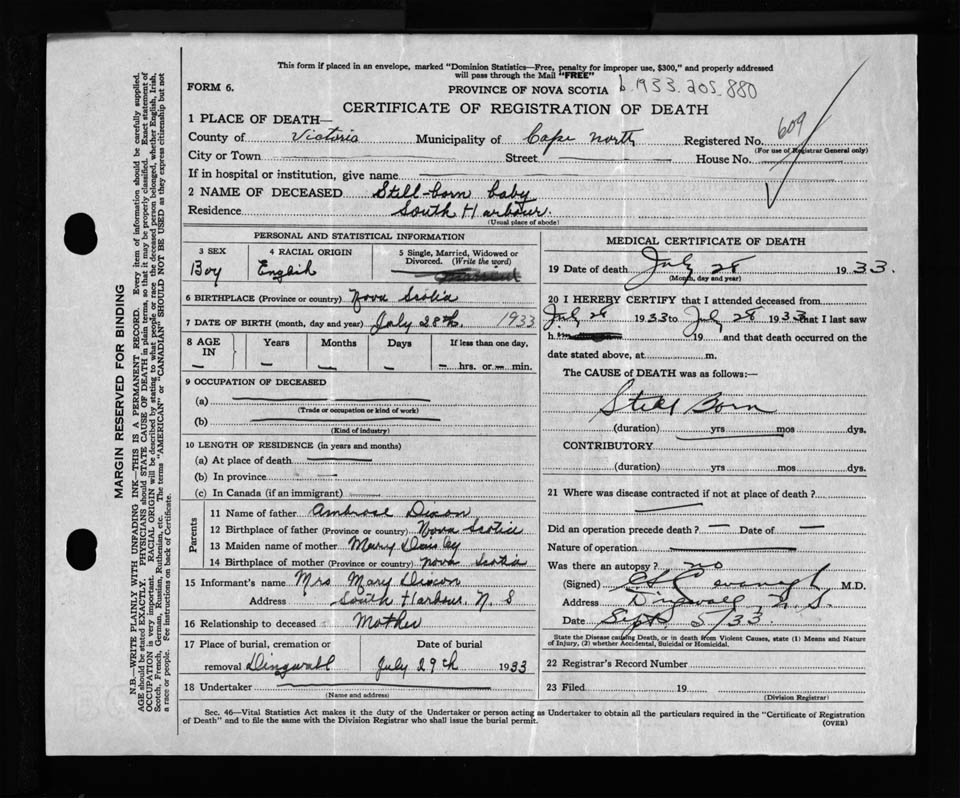 This form if placed in an envelope, marked "Dominion Statistics—Free, penalty for improper use, $300," and properly addressed
will pass through the Mail "FREE"
FORM 6. PROVINCE OF NOVA SCOTIA b.1933.205.880
CERTIFICATE OF REGISTRATION OF DEATH
1 PLACE OF DEATH—
County of Victoria Municipality of Cape North Registered No. 609
(For use of Registrar General only)
City or Town Street House No.
If in hospital or institution, give name
2 NAME OF DECEASED Still-born baby
Residence South Harbour.
(Usual place of abode)
PERSONAL AND STATISTICAL INFORMATION
3 SEX 4 RACIAL ORIGIN 5 Single, Married, Widowed or
Divorced. (Write the word)
Boy English
6 BIRTHPLACE (Province or country) Nova Scotia
7 DATE OF BIRTH (month, day and year) July 28th. 1933
8 AGE IN Years Months Days If less than one day,
— — — — hrs. or — min.
9 OCCUPATION OF DECEASED
(a)
(Trade or occupation or kind of work)
(b)
(Kind of industry)
10 LENGTH OF RESIDENCE (in years and months)
(a) At place of death
(b) In province
(c) In Canada (if an immigrant)
Parents
11 Name of father Ambrose Dixon
12 Birthplace of father (Province or country) Nova Scotia
13 Maiden name of mother Mary
14 Birthplace of mother (Province or country) Nova Scotia
15 Informant's name Mrs Mary Dixon
Address South Harbour. N. S
16 Relationship to deceased Mother
17 Place of burial, cremation or Date of burial
removal Dingwall July 29th 1933
18 Undertaker
(Name and address)
MEDICAL CERTIFICATE OF DEATH
19 Date of death July 28 1933.
(Month, day and year)
20 I HEREBY CERTIFY that I attended deceased from
July 28 1933 to July 28 1933 that I last saw
h im 19 and that death occurred on the
date stated above, at m.
The CAUSE of DEATH was as follows:—
Still Born
(duration) yrs mos dys.
CONTRIBUTORY
(duration) yrs mos dys.
21 Where was disease contracted if not at place of death?
Did an operation precede death? — Date of —
Nature of operation
Was there an autopsy? no
(Signed) M.D.
Address Dingwall, N. S.
Date Sept 5/33.
State the Disease causing Death, or in death from Violent Causes, state (1) Means and Nature
of Injury, (2) whether Accidental, Suicidal or Homicidal.
22 Registrar's Record Number
23 Filed 19
(Division Registrar)
Sec. 46—Vital Statistics Act makes it the duty of the Undertaker or person acting as Undertaker to obtain all the particulars required in the "Certificate of Registration
of Death" and to file the same with the Division Registrar who shall issue the burial permit. (OVER)
MARGIN RESERVED FOR BINDING
N.B.—WRITE PLAINLY WITH UNFADING INK—THIS IS A PERMANENT RECORD. Every item of information should be carefully supplied.
AGE should be stated EXACTLY. PHYSICIANS should STATE CAUSE OF DEATH in plain terms, so that it may be properly classified. Exact statement of
OCCUPATION is very important. RACIAL ORIGIN will be described by stating to what people or race the deceased person belonged, whether English, Irish,
Scotch, French, German, Russian, Ruthenian, etc. The terms "AMERICAN" or "CANADIAN" SHOULD NOT BE USED as they express citizenship but not
a race or people. See instructions on back of Certificate.